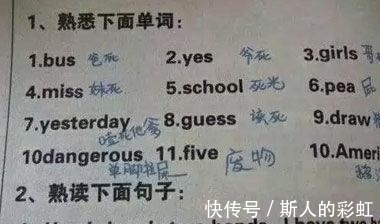 1、熟悉下面单词:
1.bus 爸死 2.yes 爷死 3.girls 哥
4.miss 妹死 5.school 死光 6.pea 屁
7.yesterday 8.guess 该死 9.draw
10dangerous 单脚拉屎 11.five 废物 10.Ameri
2、熟读下面句子:
快传号/斯人的彩虹